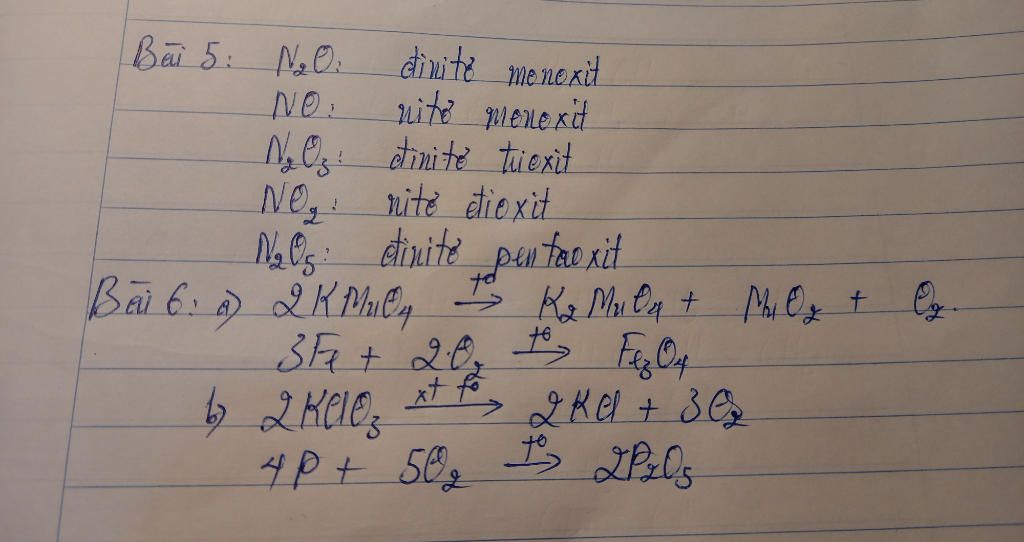 Bài 5: N₂O: đinitơ monoxit
NO: nitơ monoxit
N₂O₃: đinitơ trioxit
NO₂: nitơ đioxit
N₂O₅: đinitơ pentaoxit
Bài 6: a) 2KMnO₄ →(t°) K₂MnO₄ + MnO₂ + O₂.
3Fe + 2O₂ →(t°) Fe₃O₄
b) 2KClO₃ →(xt t°) 2KCl + 3O₂
4P + 5O₂ →(t°) 2P₂O₅